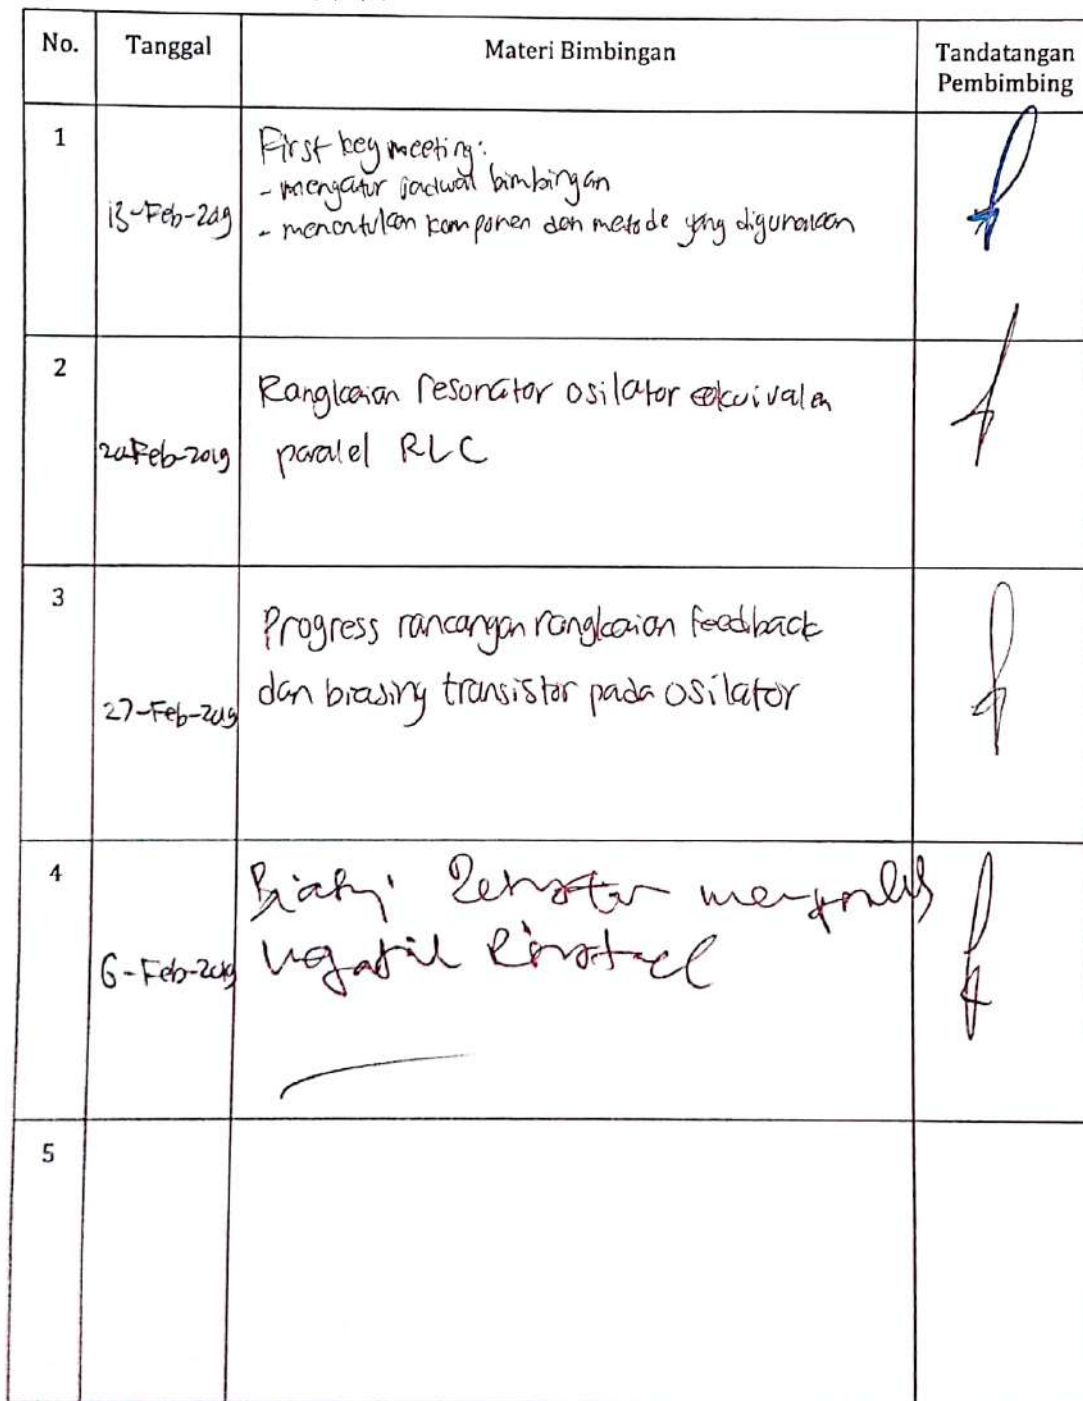 No. Tanggal Materi Bimbingan Tandatangan Pembimbing
1
13-Feb-2019
First key meeting:
- mengatur jadwal bimbingan
- menentukan komponen dan metode yang digunakan
2
20-Feb-2019
Rangkaian resonator osilator ekuivalen
paralel RLC
3
27-Feb-2019
Progress rancangan rangkaian feedback
dan biasing transistor pada osilator
4
6-Feb-2019
5